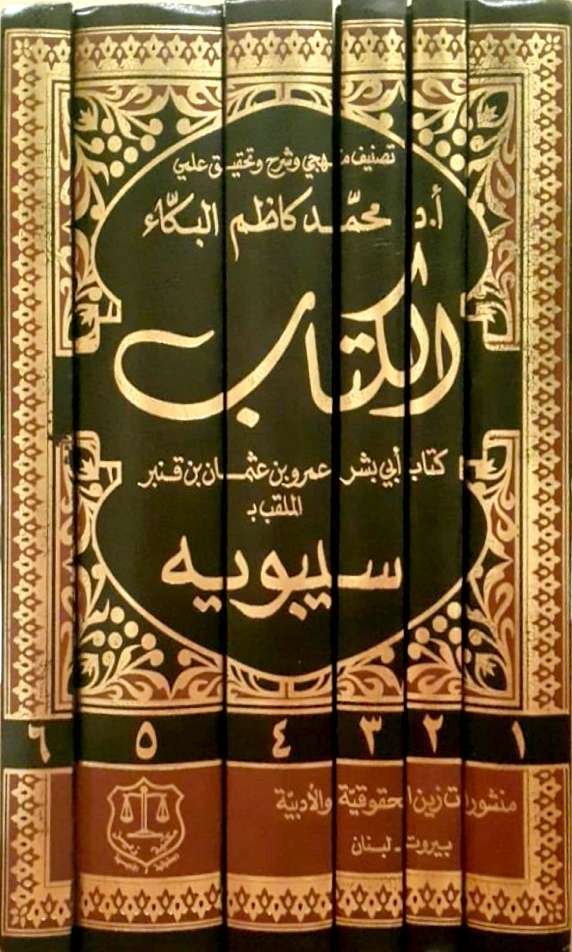 تصنيف منهجي وشرح وتحقيق علمي
أ.د محمّد كاظم البكّاء
الكتاب
كتاب أبي بشر عمرو بن عثمان بن قنبر
الملقب بـ
سيبويه
١ ٢ ٣ ٤ ٥ ٦
منشورات زين الحقوقيّة والأدبيّة
بيروت - لبنان